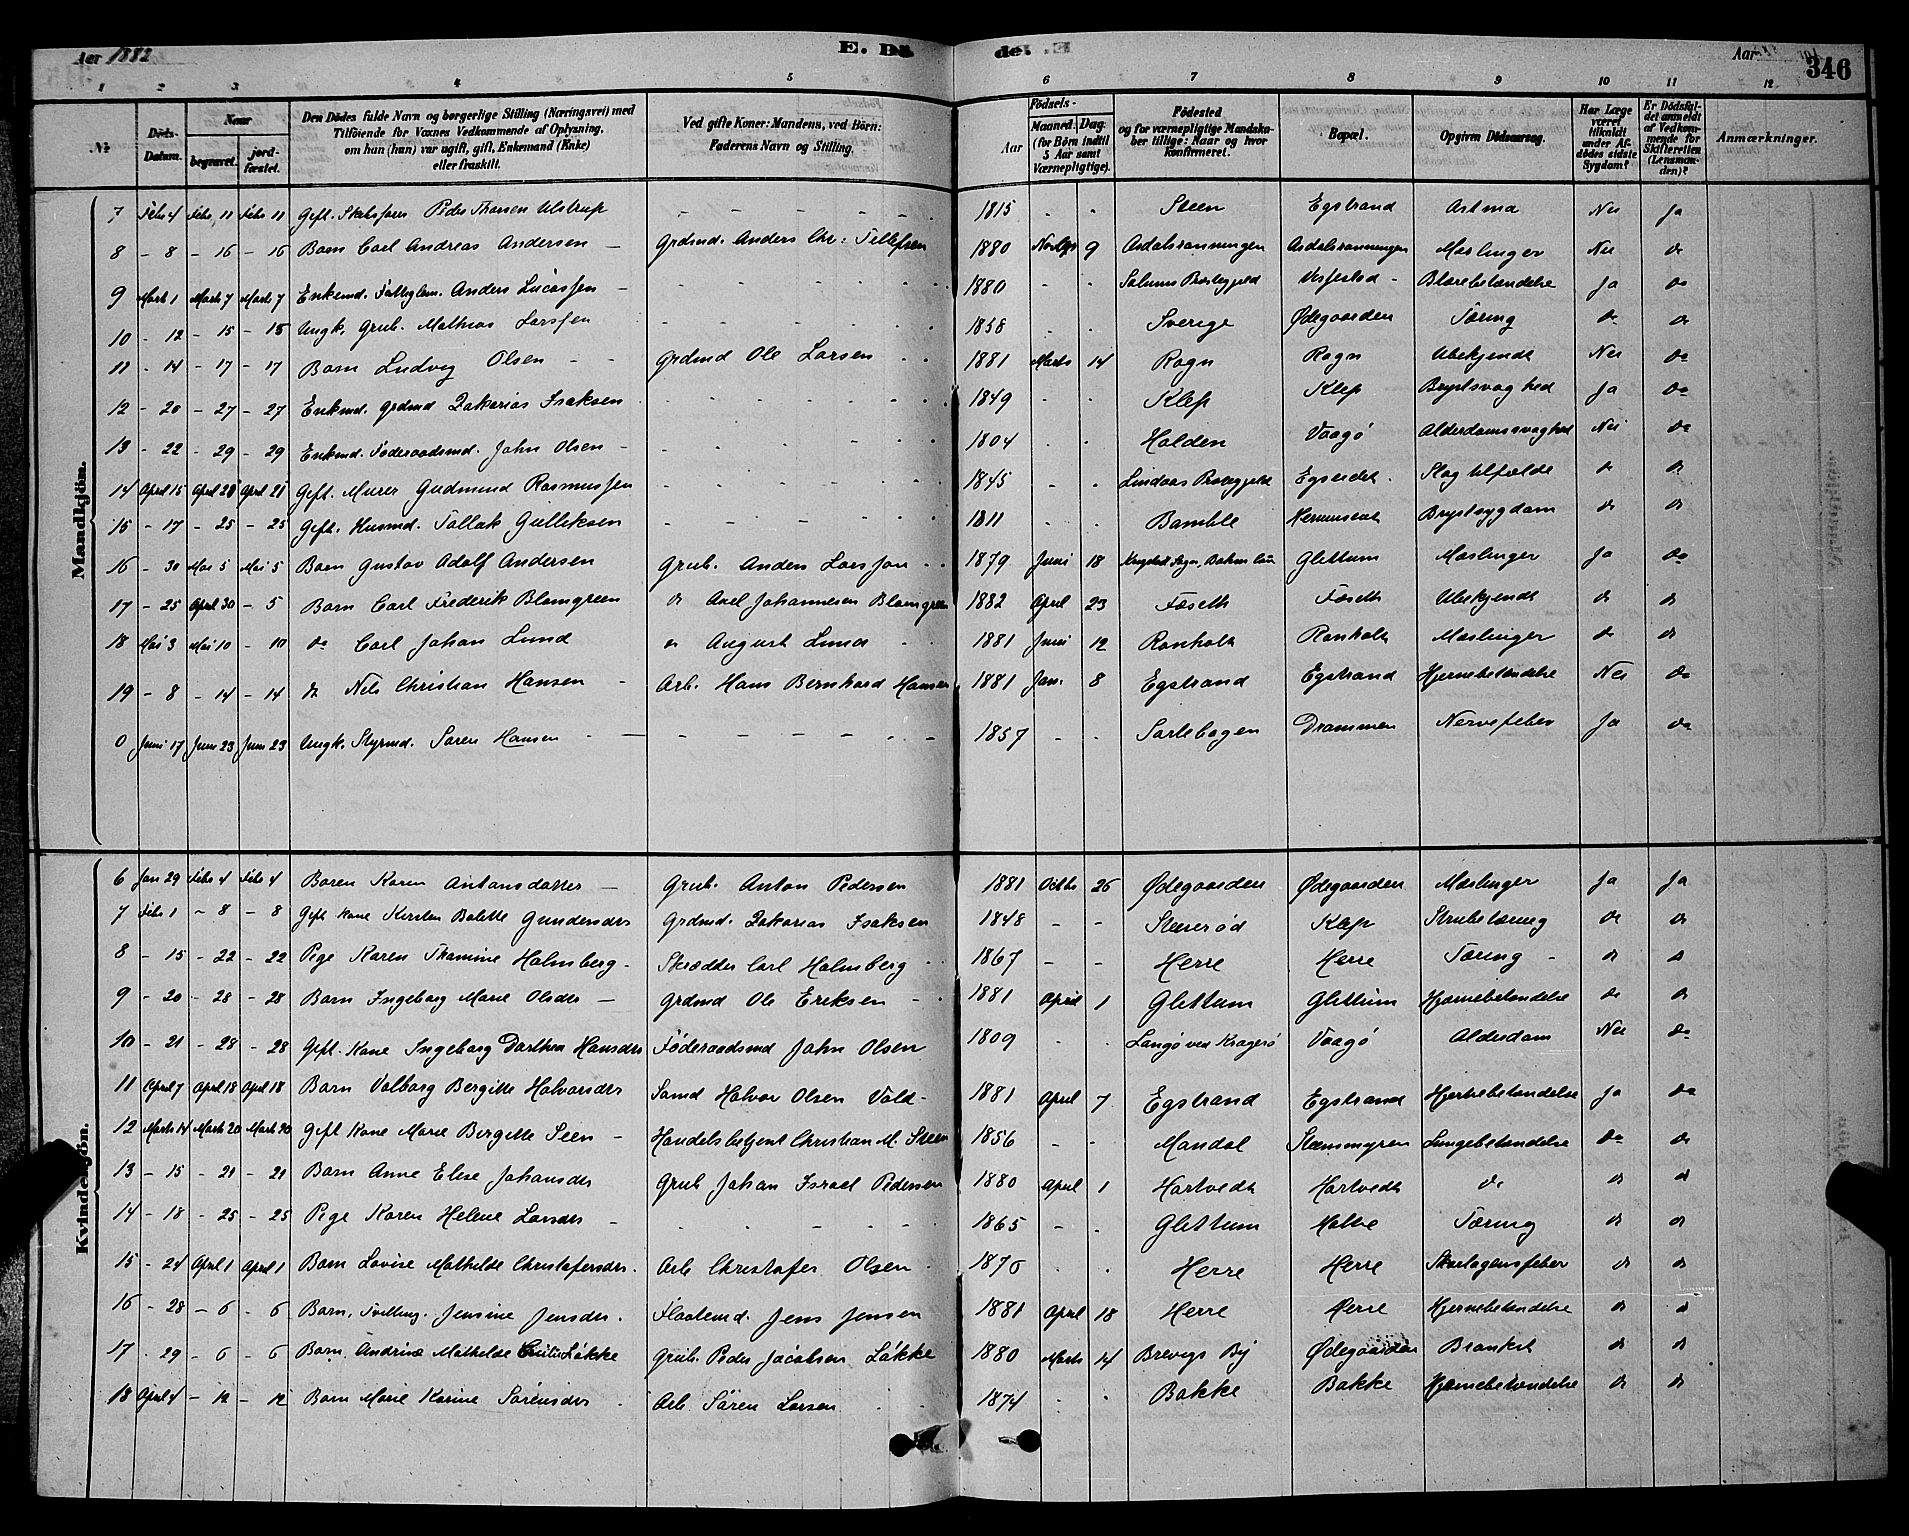 Aar 1882
E. Dö
de. E
Aar
346
1 2 3 4 5 6 7 8 9 10 11 12
№
Döds-Datum.
Naar begravet. jordfæstet.
Den Dödes fulde Navn og borgerlige Stilling (Næringsvei) med Tilföiende for Voxnes Vedkommende af Oplysning, om hun (han) var ugift, gift, Enkemand (Enke) eller fraskilt.
Ved gifte Koner: Mandens, ved Börn: Faderens Navn og Stilling.
Födsels- Aar Maaned. Dag. (for Börn indtil 5 Aar samt Værnepligtige).
Födested og for værnepligtige Mandskaber tillige: Naar og hvor konfirmeret.
Bopæl.
Opgiven Dödsaarsag.
Har Læge været tilkaldt under Afdødes sidste Sygdom?
Er Dödsfaldet anmeldt af Vedkommende for Skifteretten (Lensmanden)?
Anmærkninger.
Mandkjön.
7 Febr 4 Febr 11 Febr 11 Gift. Skibsförer Peder Thorsen Ulstrup - - 1815 - - Steen Egstrand Astma Nei Ja
8 - 8 - 16 - 16 Barn Carl Andreas Andersen - Grdmd. Anders Chr: Tellefsen 1880 9 Asdalsranningen Asdalsranningen Mæslinger Nei do
9 Marts 1 Marts 7 Marts 7 Enkemd. Fattiglem. Anders Lucassen - 1880 - - Solums Præstegjeld Blærebetændelse Ja do
10 - 12 - 15 - 15 Ungk. Grub. Mathias Larssen - 1858 - - Sverige Ødegaarden Tæring do do
11 - 14 - 17 - 17 Barn Ludvig Olsen - - Grdmd Ole Larsen 1881 Marts 14 Rogn Rogn Ubekjendt Nei do
12 - 20 - 27 - 27 Enkmd. Grdmd Zakarias Isaksen 1849 - - Klep Klep Brystsvaghed Ja do
13 - 22 - 29 - 29 Enkmd. Föderaadsmd. John Olsen - 1804 - - Halden Vaagö Alderdomssvaghed Nei do
14 April 15 April 21 April 21 Gift. Murer Gudmund Rasmussen 1845 - - Lindaas Præstegjeld Egseidet. Slagtilfælde do do
15 - 17 - 25 - 25 Gift. Husmd. Tollak Gulliksen 1811 - - Bamble Brystsygdom do do
16 - 30 Mai 5 Mai 5 Barn Gustav Adolf Andersen Grub. Anders Larsson 1879 Juni 18 Glittum Mæslinger Ja do
17 - 25 April 30 - 5 Barn Carl Frederik Blomgreen do Axel Johannesen Blomgreen 1882 April 23 Fæseth Fæseth Ubekjendt do do
18 Mai 3 Mai 10 - 10 do Carl Johan Lund do August Lund 1881 Juni 12 Ronholt Ronholt Mæslinger do do
19 - 8 - 14 - 14 do Nils Christian Hansen - Arb. Hans Bernhard Hansen 1881 Jan. 8 Egstrand Egstrand Hjernebetændelse Nei do
0 Juni 17 Juni 23 Juni 23 Ungk. Styrmd. Søren Hansen - - 1857 - - Sortebogen Drammen Nervefeber Ja do
Kvindekjön.
6 Jan 29 Febr 4 Febr 4 Baren Karen Antonsdatter - Grub. Anton Pedersen 1881 Octbr 26 Ødegaarden Ødegaarden Mæslinger Ja Ja
7 Febr 1 - 8 - 8 Gift Kone Kirsten Bolette Gundersdtr Grdmd. Zakarias Isaksen 1848 - - Stærerød Klep Strubetæring do do
8 - 15 - 22 - 22 Pige Karen Thomine Holmberg - Skrædder Carl Holmberg 1867 - - Herre Herre Tæring - do do
9 - 20 - 28 - 28 Barn Ingeborg Marie Olsdtr - Grdmd Ole Eriksen - 1881 April 1 Glittum Glittum Hjernebetændelse do do
10 - 21 - 28 - 28 Gift. Kone Ingeborg Dorthea Hansdtr Föderaadsmd John Olsen 1809 - - Langø ved Kragerø Vaagö Alderdom Nei do
11 April 7 April 18 April 18 Barn Valborg Bergitte Halvorsdtr Sømd Halvor Olsen Vold - 1881 April 7 Egstrand Egstrand Hjernebetændelse Ja do
12 Marts 14 Marts 20 Marts 20 Gift Kone Marie Bergitte Steen - Handelsbetjent Christian M. Steen 1856 - - Mandal Stemmyren Lungebetændelse do do
13 - 15 - 21 - 21 Barn Anne Elise Johansdtr Grub Johan Israel Pedersen 1880 April 1 Hartvedt Hartvedt do do do
14 - 18 - 25 - 25 Pige Karen Helene Larsdtr - - 1865 - - Glittum Tæring do do
15 - 24 April 1 April 1 Barn Lovise Mathilde Christofersdtr. Arb Christofer Olsen 1870 - - Herre Herre Skarlagensfeber do do
16 - 28 - 6 - 6 Barn, Tvilling. Jensine Jensdtr. Flaatemd. Jens Jensen 1881 April 18 Herre Herre Hjernebetændelse do do
17 - 29 - 6 - 6 Barn Andrine Mathilde Løkke Grub. Peder Jacobsen Løkke 1880 Marts 14 Brevigs By Ødegaarden Bronkit do do
18 April 4 - 12 - 12 Barn Marie Karine Sørensdtr Arb Søren Larsen 1874 - - Bakke Bakke Hjernebetændelse do do